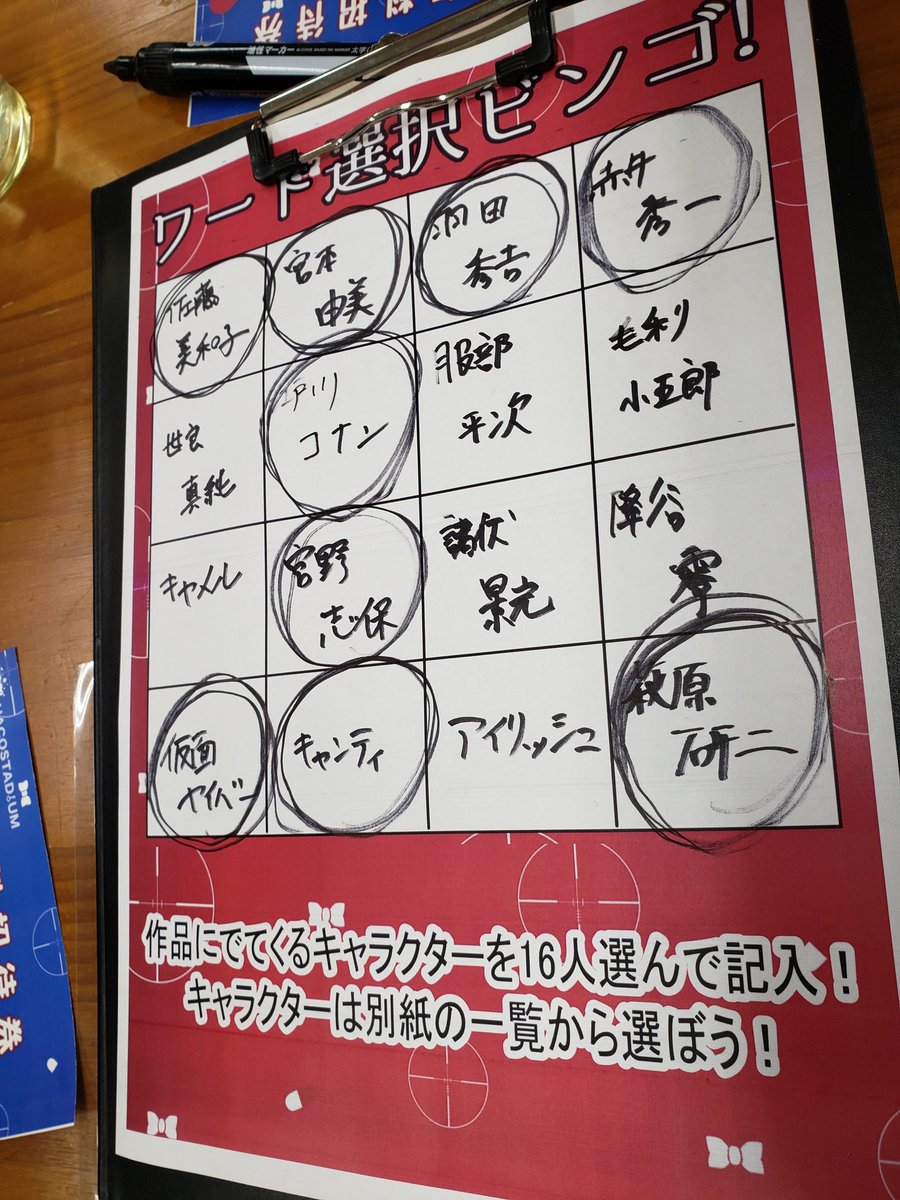 油性マーカー ALCOHOL BASED INK MARKER 太字
招待券
ワード選択ビンゴ!
佐藤
美和子
宮本
由美
羽田
秀吉
赤井
秀一
世良
真純
江戸川
コナン
服部
平次
毛利
小五郎
キャメル
宮野
志保
諸伏
景光
降谷
零
仮面
ヤイバー
キャンティ
アイリッシュ
萩原
研二
作品にでてくるキャラクターを16人選んで記入!
キャラクターは別紙の一覧から選ぼう!
WACOSTADIUM
招待券